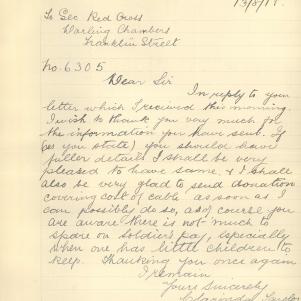 13/8/17.
To Sec. Red Cross
Darling Chambers
Franklin Street
No. 6305
Dear Sir
In reply to your
letter which I received this morning.
I wish to thank you very much for
the information you have sent. If
(as you state) you should have
fuller details I shall be very
pleased to have same, & I shall
also be very glad to send donation
covering cost of cable as soon as I
can possibly do so, as of course you
are aware there is not much to
spare on soldier's pay, especially
when one has little children to
keep. Thanking you once again
I remain
Yours Sincerely
Taylor